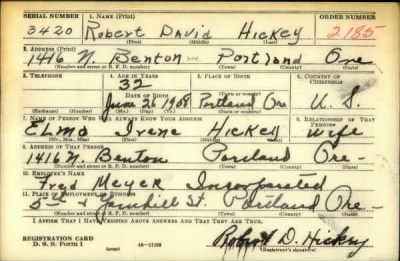 SERIAL NUMBER 1. NAME (Print) ORDER NUMBER
3420 Robert David Hickey 2185
(First) (Middle) (Last)
2. ADDRESS (Print)
1416 N. Benton Ave Portland Ore
(Number and street or R. F. D. number) (Town) (County) (State)
3. TELEPHONE 4. AGE IN YEARS 5. PLACE OF BIRTH 6. COUNTRY OF CITIZENSHIP
32
DATE OF BIRTH
June 26 1908 Portland Ore U. S.
(Exchange) (Number) (Mo.) (Day) (Yr.) (Town or county) (State or country)
7. NAME OF PERSON WHO WILL ALWAYS KNOW YOUR ADDRESS 8. RELATIONSHIP OF THAT PERSON
Elma Irene Hickey Wife
(Mr., Mrs., Miss) (First) (Middle) (Last)
9. ADDRESS OF THAT PERSON
1416 N. Benton Portland Ore -
(Number and street or R. F. D. number) (Town) (County) (State)
10. EMPLOYER'S NAME
Fred Meyer Incorporated
11. PLACE OF EMPLOYMENT OR BUSINESS
5th & Yamhill St. Portland Ore -
(Number and street or R. F. D. number) (Town) (County) (State)
I AFFIRM THAT I HAVE VERIFIED ABOVE ANSWERS AND THAT THEY ARE TRUE.
REGISTRATION CARD
D. S. S. Form 1 Robert D. Hickey
(Registrant's signature)